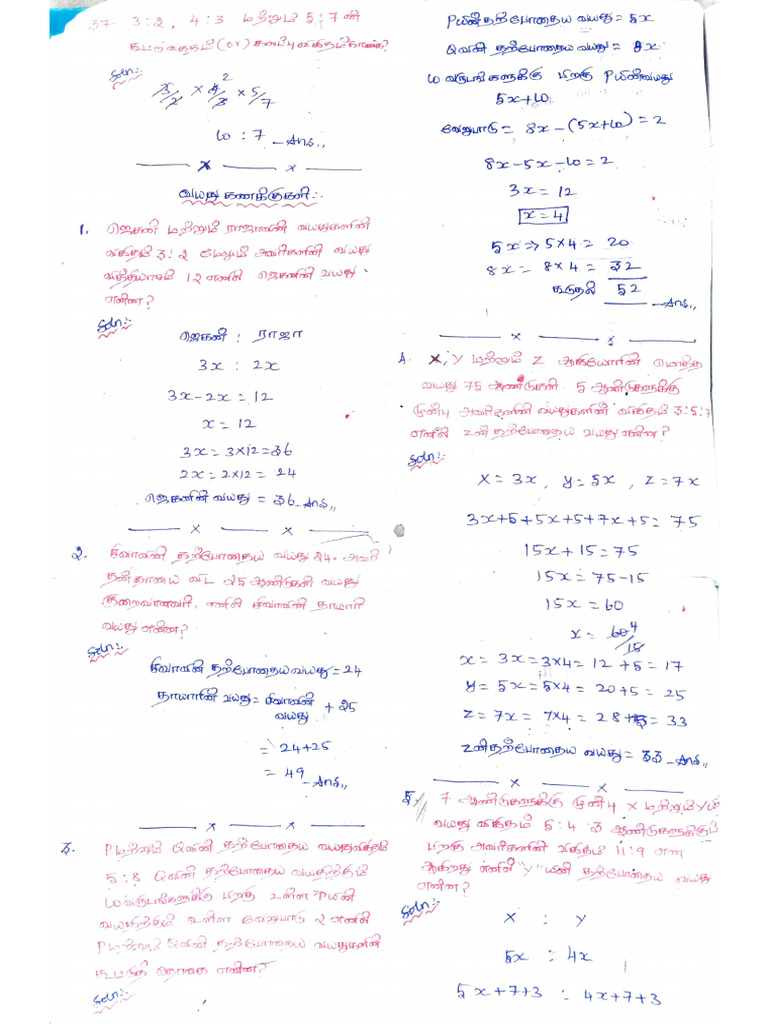 37. 3:2, 4:3 மற்றும் 5:7ன்
கூட்டுவிகிதம் (or) கலப்பு விகிதம் காண்க?
Soln:-
3/2 × 4/3 × 5/7
2
10 : 7 -Ans,,
வயது கணக்குகள்:-
1. ஜெகன் மற்றும் ராஜாவின் வயதுகளின்
விகிதம் 3:2 மேலும் அவர்களின் வயது
வித்தியாசம் 12 எனில் ஜெகனின் வயது
என்ன?
Soln:-
ஜெகன் : ராஜா
3x : 2x
3x-2x = 12
x = 12
3x = 3×12 = 36
2x = 2×12 = 24
ஜெகனின் வயது = 36 -Ans,,
2. சிவாவின் தற்போதைய வயது 24. அவர்
தன் தாயை விட 25 ஆண்டுகள் வயது
குறைவானவர், எனில் சிவாவின் தாயார்
வயது என்ன?
Soln:-
சிவாவின் தற்போதைய வயது = 24
தாயாரின் வயது = சிவாவின் வயது + 25
= 24+25
= 49 -Ans,,
3. P மற்றும் Qவின் தற்போதைய வயது விகிதம்
5:8 Qவின் தற்போதைய வயதிற்கும்
10 வருடங்களுக்கு பிறகு உள்ள Pயின்
வயதிற்கும் உள்ள வேறுபாடு 2 எனில்
P மற்றும் Qவின் தற்போதைய வயதுகளின்
கூடுதல் தொகை என்ன?
Soln:-
Pயின் தற்போதைய வயது = 5x
Qவின் தற்போதைய வயது = 8x
10 வருடங்களுக்கு பிறகு Pயின் வயது
5x+10
வேறுபாடு = 8x-(5x+10) = 2
8x-5x-10 = 2
3x = 12
x = 4
5x => 5×4 = 20
8x = 8×4 = 32
கூடுதல் 52 -Ans,,
4. X, Y மற்றும் Z ஆகியோரின் மொத்த
வயது 75 ஆண்டுகள். 5 ஆண்டுகளுக்கு
முன்பு அவர்களின் வயதுகளின் விகிதம் 3:5:7
எனில் Zன் தற்போதைய வயது என்ன?
Soln:-
X = 3x, y = 5x, Z = 7x
3x+5+5x+5+7x+5 = 75
15x+15 = 75
15x = 75-15
15x = 60
x = 60/15 4
x = 3x = 3×4 = 12 +5 = 17
y = 5x = 5×4 = 20+5 = 25
Z = 7x = 7×4 = 28+5 = 33
Zன் தற்போதைய வயது = 33 -Ans,,
5. 7 ஆண்டுகளுக்கு முன்பு X மற்றும் Yன்
வயது விகிதம் 5:4 3 ஆண்டுகளுக்குப்
பிறகு அவர்களின் விகிதம் 11:9 என
ஆகிறது எனில் "Y" யின் தற்போதைய வயது
என்ன?
Soln:-
X : Y
5x : 4x
5x+7+3 : 4x+7+3